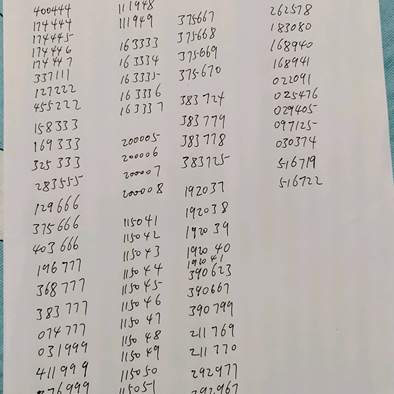 400444
174444
174445
174446
174447
337111
127222
455222
158333
169333
325333
283555
129666
375666
403666
196777
368777
383777
074777
031999
411999
111948
111949
163333
163334
163335
163336
163337
200005
200006
200007
200008
115041
115042
115043
115044
115045
115046
115047
115048
115049
115050
115051
375667
375668
375669
375670
383724
383779
383778
383725
192037
192038
192039
192040
192041
390623
390667
390799
211769
211770
292977
292967
262578
183080
168940
168941
022091
025476
029405
097125
030374
516719
516722